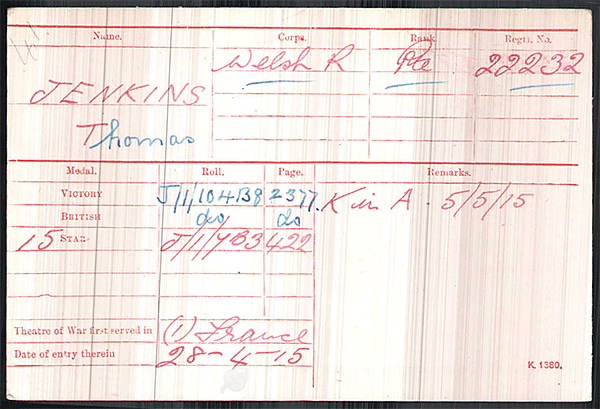 Name. Corps. Rank Regtl. No.
Welsh R Pte 22232
JENKINS
Thomas
Medal. Roll. Page. Remarks.
VICTORY J/1/104B8 2377. K in A. 5/5/15
BRITISH do do
15 STAR J/1/7B3 422
Theatre of War first served in (1) France
Date of entry therein 28-4-15
K. 1380.